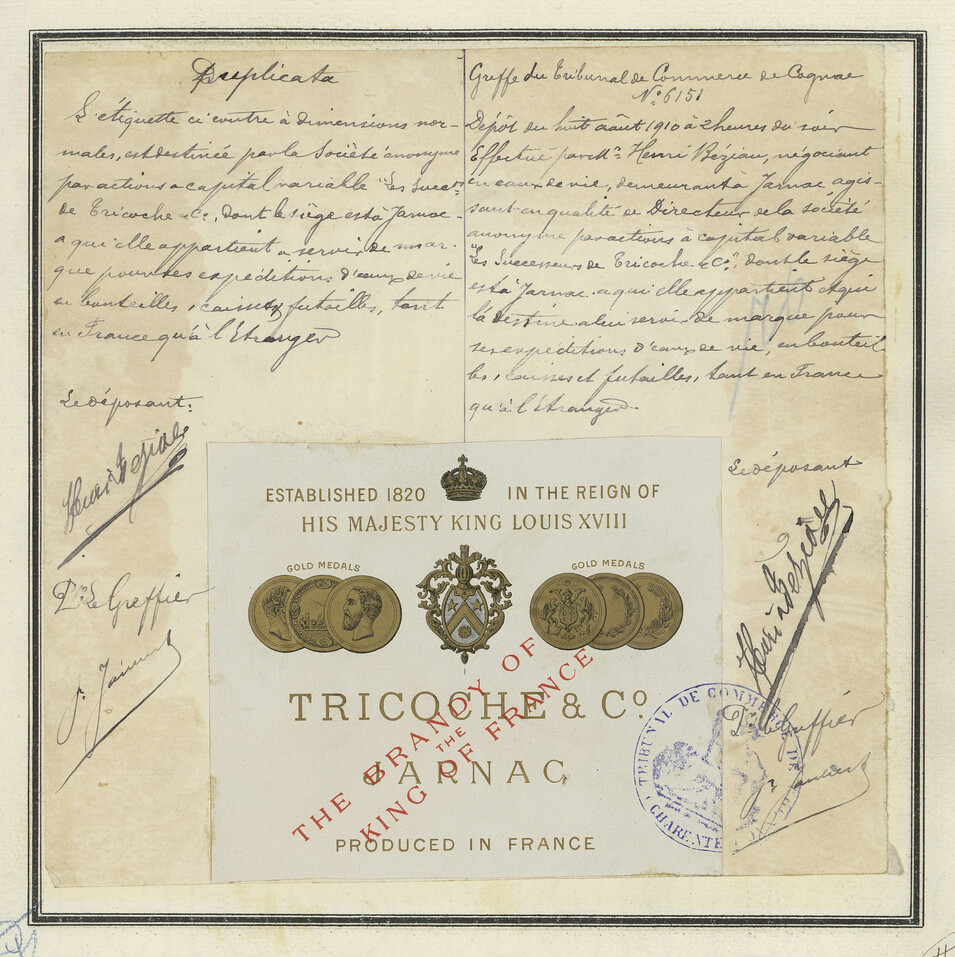 Duplicata
L'étiquette ci contre à dimensions nor-
males, est destinée par la Société anonyme
par actions a capital variable "Les Succrs
de Tricoche & Co, dont le siège est à Jarnac-
a qui elle appartient a servir de mar-
que pour ses expéditions d'eaux de vie
en bouteilles, caisses, futailles, tant
en France qu'à l'Etranger
Le déposant:
Henri Béziau
Le Greffier
Greffe du Tribunal de Commerce de Cognac
No 6151
Dépôt du huit août 1910 à 2 heures du soir
Effectué par Mr Henri Béziau, négociant
en eaux de vie, demeurant à Jarnac agis-
sant en qualité de Directeur de la société
anonyme par actions à capital variable
"Les Successeurs de Tricoche & Co", dont le siège
est à Jarnac a qui elle appartient et qui
la destine a lui servir de marque pour
ses expéditions d'eaux de vie, en bouteil
les, caisses et futailles, tant en France
qu'à l'Etranger.
Le déposant
Henri Béziau
Le Greffier
ESTABLISHED 1820 IN THE REIGN OF
HIS MAJESTY KING LOUIS XVIII
GOLD MEDALS GOLD MEDALS
TRICOCHE & Co
JARNAC
THE BRANDY OF
THE
KING OF FRANCE
PRODUCED IN FRANCE
TRIBUNAL DE COMMERCE DE
CHARENTE